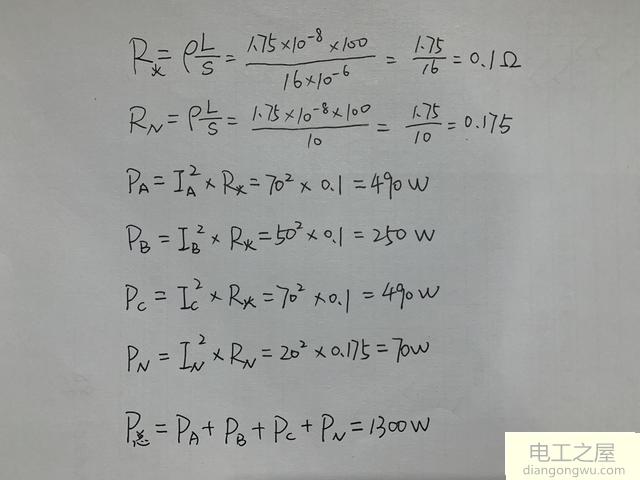 R火 = ρL/S = 1.75×10⁻⁸×100/16×10⁻⁶ = 1.75/16 = 0.1Ω
R_N = ρL/S = 1.75×10⁻⁸×100/10 = 1.75/10 = 0.175
P_A = I_A² × R火 = 70² × 0.1 = 490W
P_B = I_B² × R火 = 50² × 0.1 = 250W
P_C = I_C² × R火 = 70² × 0.1 = 490W
P_N = I_N² × R_N = 20² × 0.175 = 70W
P总 = P_A + P_B + P_C + P_N = 1300W
电工之屋
diangongwu.com